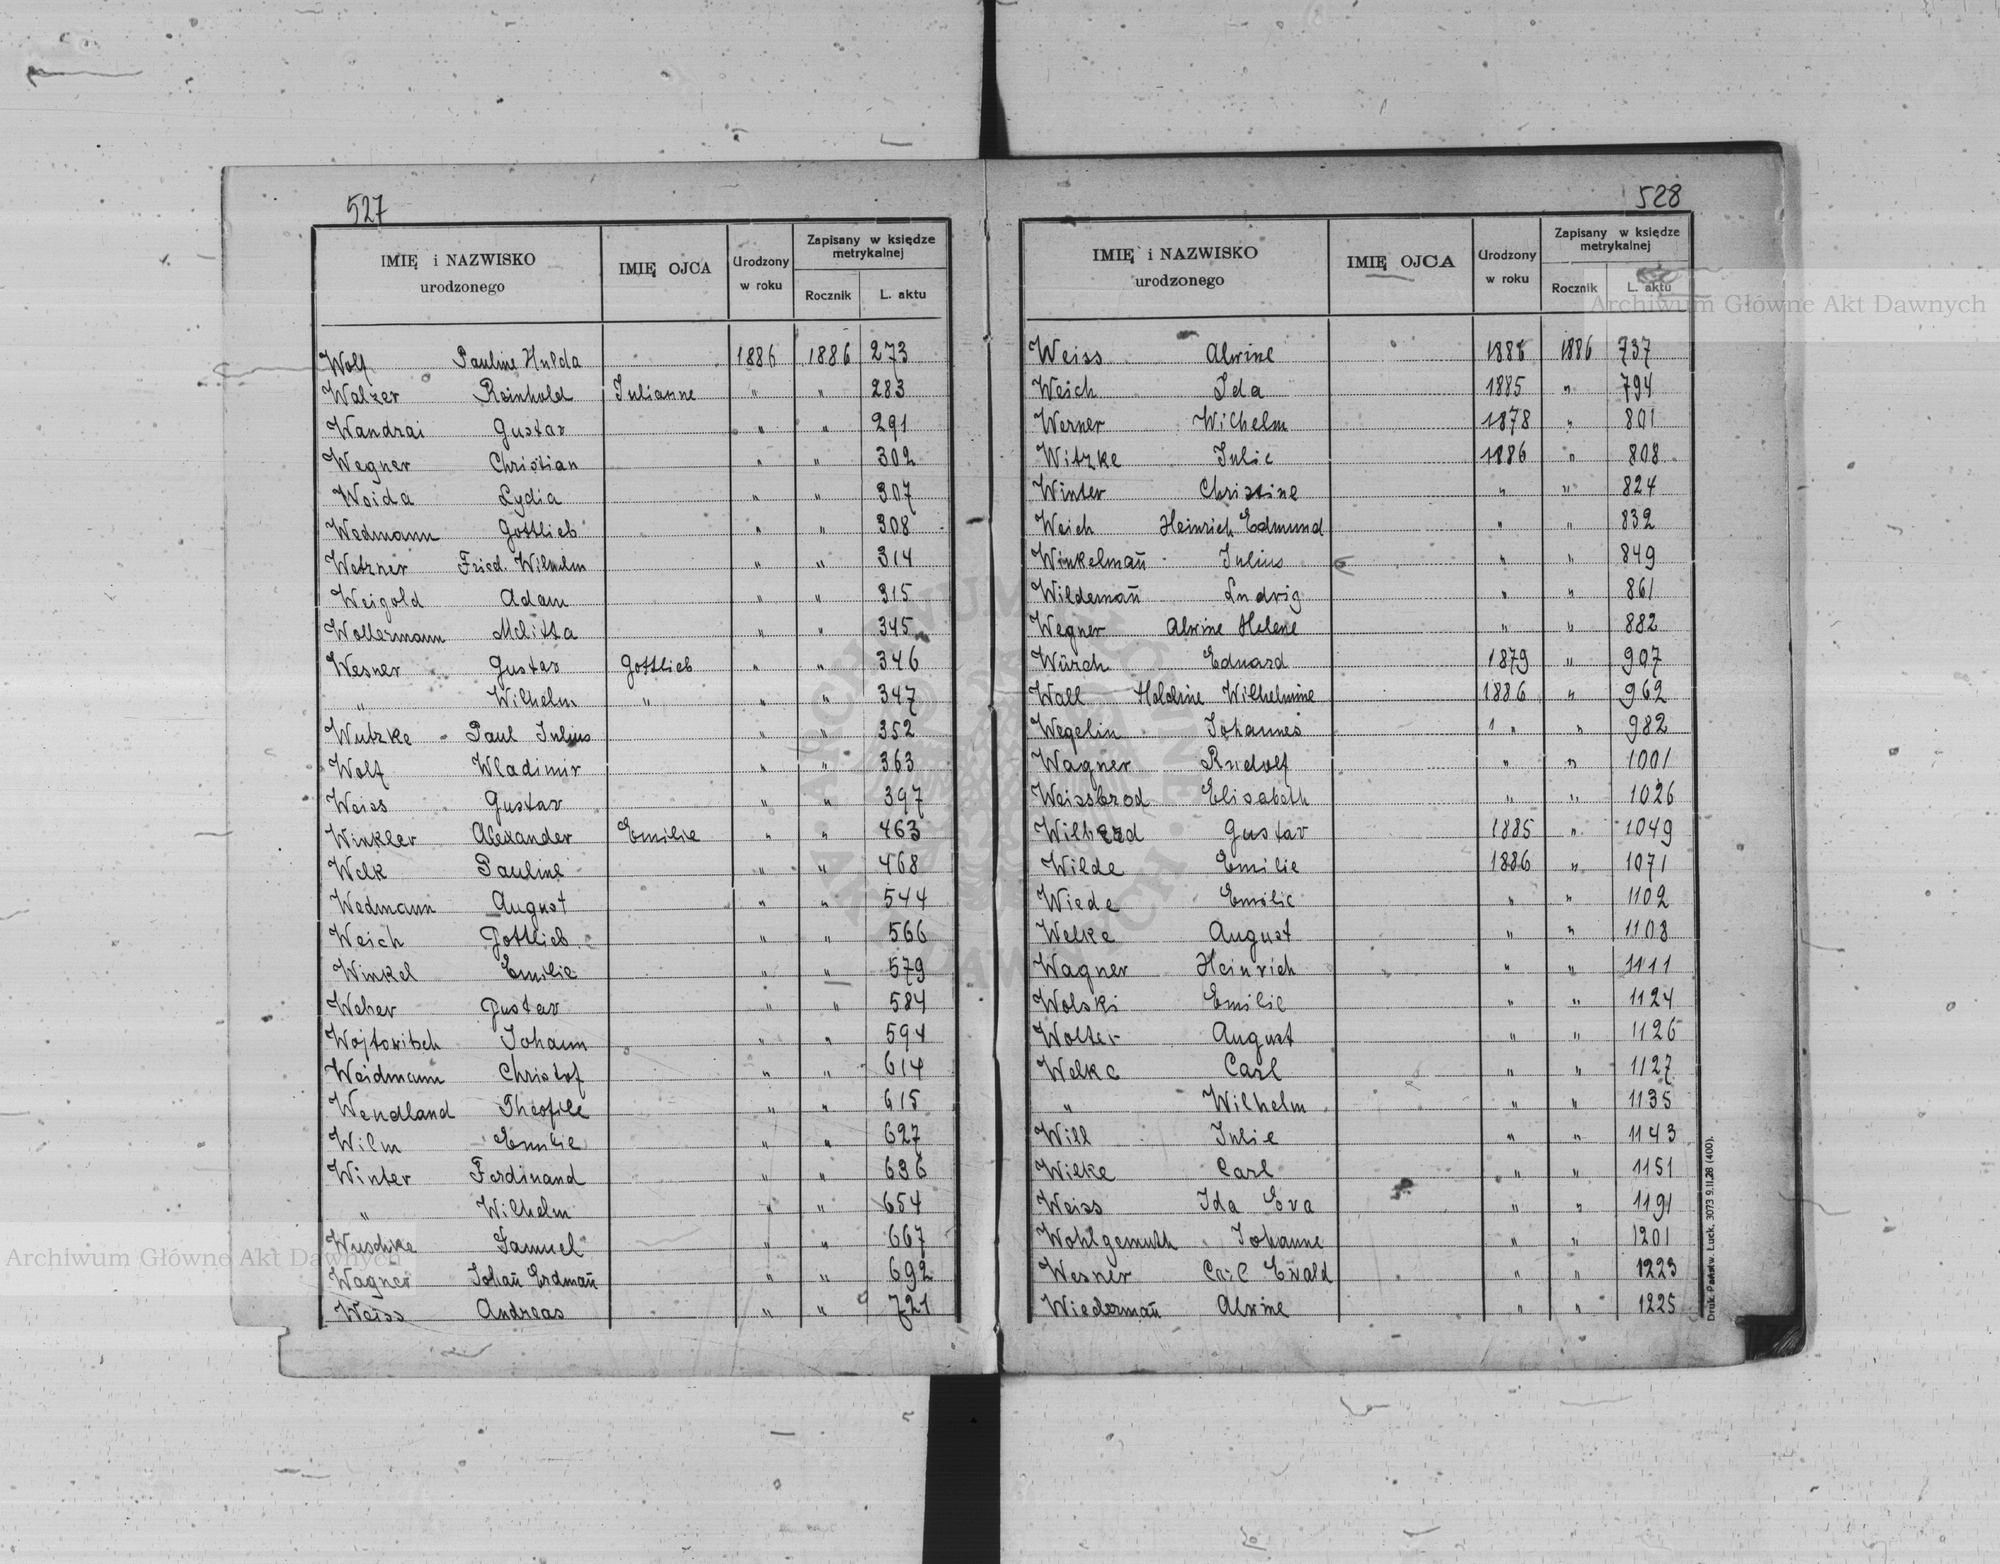 527
IMIĘ i NAZWISKO urodzonego IMIĘ OJCA Urodzony w roku Zapisany w księdze metrykalnej Rocznik L. aktu
Wolf Pauline Hulda 1886 1886 273
Walzer Reinhold Julianne " " 283
Wandrai Gustav " " 291
Wegner Christian " " 302
Woida Lydia " " 307
Wedmann Gottlieb " " 308
Wetzner Fried. Wilhelm " " 314
Weigold Adam " " 315
Wollermann Melitta " " 345
Wesner Gustav Gottlieb " " 346
" Wilhelm " " " 347
Wutzke Paul Julius " " 352
Wolf Wladimir " " 363
Weiss Gustav " " 397
Winkler Alexander Emilie " " 463
Welk Pauline " " 468
Wedmann August " " 544
Weich Gottlieb " " 566
Winkel Emilie " " 579
Weber Gustav " " 584
Wojtowitsch Johann " " 594
Weidmann Christof " " 614
Wendland Theofile " " 615
Wilm Emilie " " 627
Winter Ferdinand " " 636
" Wilhelm " " 654
Wuschke Samuel " " 667
Wagner Johañ Erdmañ " " 692
Weiss Andreas " " 721
528
IMIĘ i NAZWISKO urodzonego IMIĘ OJCA Urodzony w roku Zapisany w księdze metrykalnej Rocznik L. aktu
Weiss Alwine 1886 1886 737
Weich Ida 1885 " 794
Werner Wilhelm 1878 " 801
Witzke Julie 1886 " 808
Winter Christine " " 824
Weich Heinrich Edmund " " 832
Winkelmañ Julius " " 849
Wildemañ Ludwig " " 861
Wegner Alwine Helene " " 882
Würch Eduard 1879 " 907
Wall Wilhelmine 1886 " 962
Wegelin Johannes " " 982
Wagner Rudolf " " 1001
Weissbrod Elisabeth " " 1026
Gustav 1885 " 1049
Wilde Emilie 1886 " 1071
Wiede Emilie " " 1102
Welke August " " 1103
Wagner Heinrich " " 1111
Wolski Emilie " " 1124
Wolter August " " 1126
Welke Carl " " 1127
" Wilhelm " " 1135
Will Julie " " 1143
Wilke Carl " " 1151
Weiss Ida Eva " " 1191
Wohlgemuth Johanne " " 1201
Wesner Carl Ewald " " 1223
Wiedermañ Alwine " " 1225
Druk. Państw. Łuck. 3073 9.II.28 (400).
Archiwum Główne Akt Dawnych
Archiwum Główne Akt Dawnych